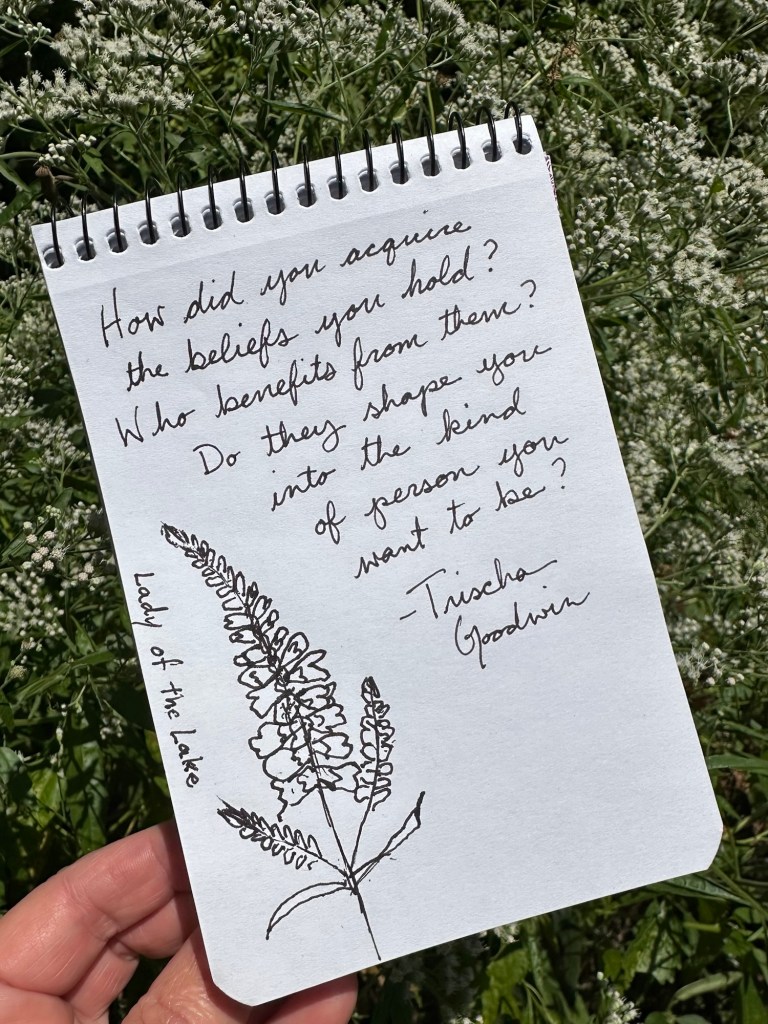 How did you acquire
the beliefs you hold?
Who benefits from them?
Do they shape you
into the kind
of person you
want to be?
-Trischa
Goodwin
Lady of the Lake